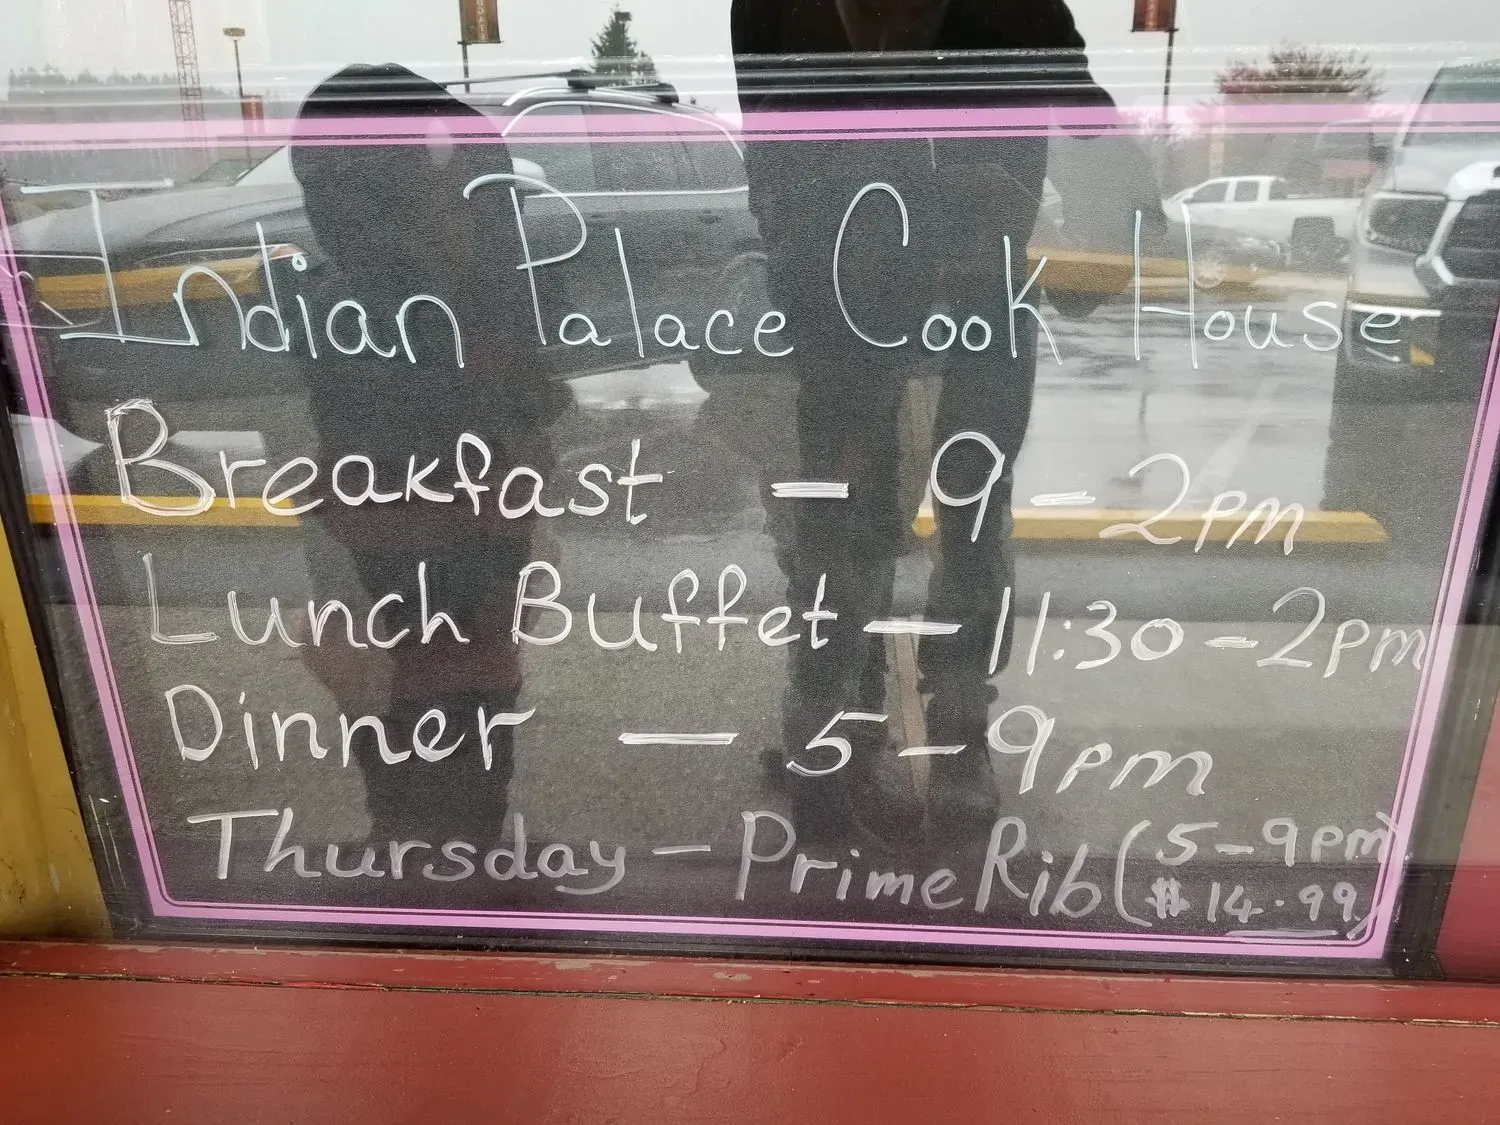 Indian Palace Cook House
Breakfast - 9 - 2pm
Lunch Buffet - 11:30 - 2pm
Dinner - 5 - 9pm
Thursday - Prime Rib (5 - 9pm
$14.99)